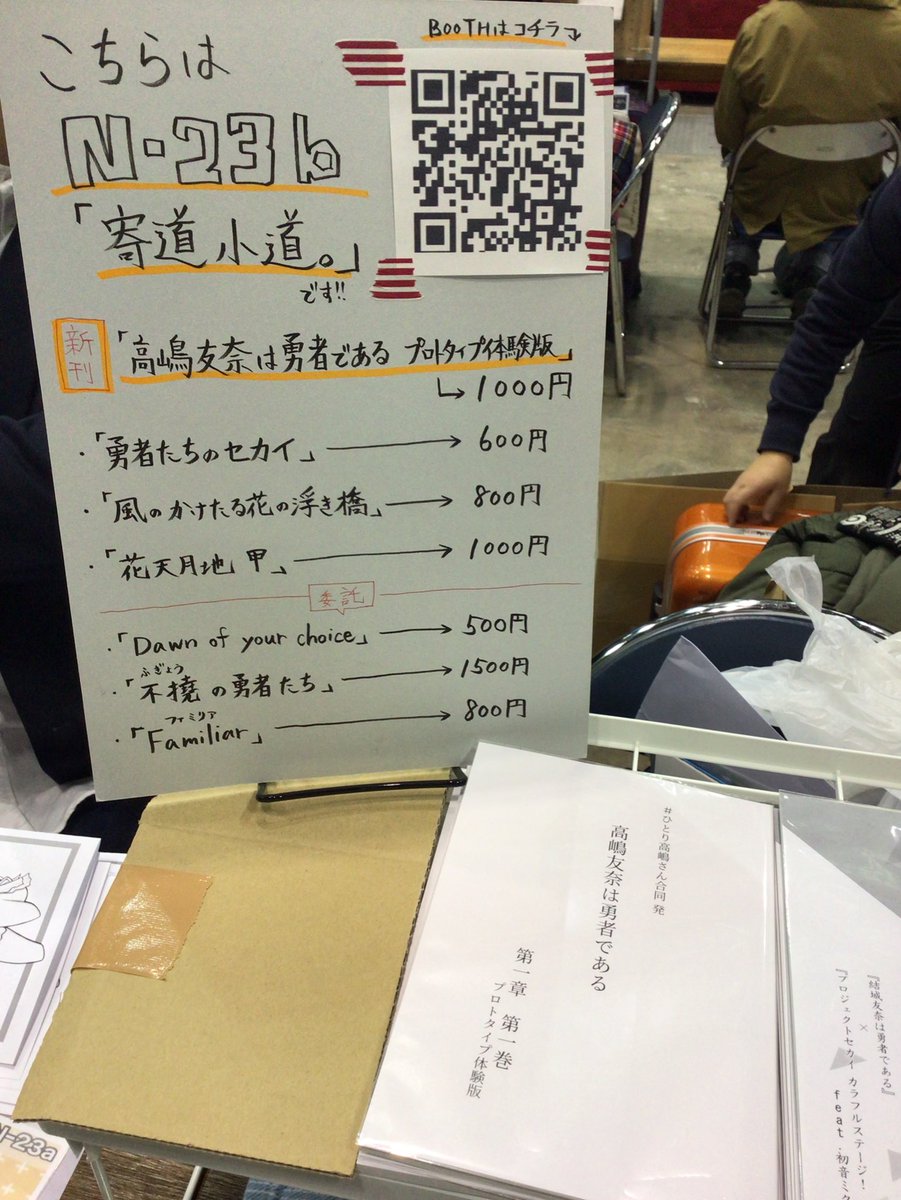 BOOTHはコチラ
こちらは
N-23b
「寄道小道。」
です!!
新刊
「高嶋友奈は勇者である プロトタイプ体験版」
1000円
・「勇者たちのセカイ」 600円
・「風のかけたる花の浮き橋」 800円
・「花天月地 甲」 1000円
委託
・「Dawn of your choice」 500円
ふぎょう
・「不撓の勇者たち」 1500円
ファミリア
・「Familiar」 800円
#ひとり高嶋さん合同 発
高嶋友奈は勇者である
第一章 第一巻
プロトタイプ体験版
『結城友奈は勇者である』
×
『プロジェクトセカイ カラフルステージ!
feat.初音ミク
N-23a